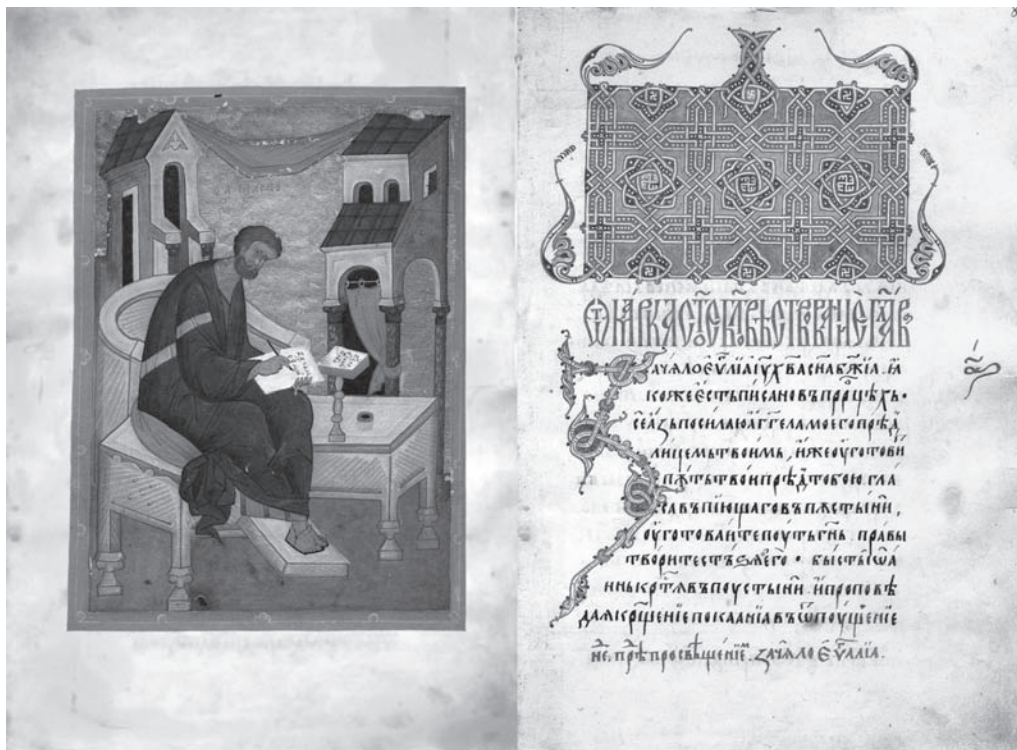 ачѧлоеѵ҃лїаіу҃х҃васн҃аб҃жїа. ꙗ
кожеестъписановъпрⷪ҇рцѣхъ•
сеазъпосилаюаггеламоегопрѣⷣ
лицемьтвоимь, иже оуготови
пѫтьтвоипрѣⷣтобою. гла
съвъпїющаговъпѫстыни,
оуготоваитепоутьгн҃ь. правы
творитестъѕѧего • быстьіѡа
ннькрⷭ҇тѧвъпоустыни. ипроповѣ
даѧкр҃щенїепокаанїавъѿпоущенїе
не. прⷣѣ просвѣщенїеⷨ. зачѧлоеѵⷢ҇лїа.